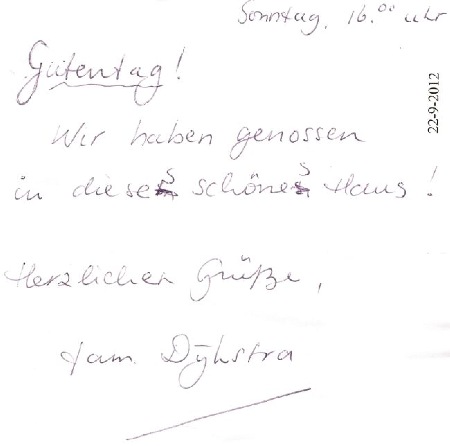 Sonntag, 16.00 uhr
Gutentag!
22-9-2012
Wir haben genossen
in dieses schönes Haus!
Herzlichen Grüße,
fam. Dijkstra